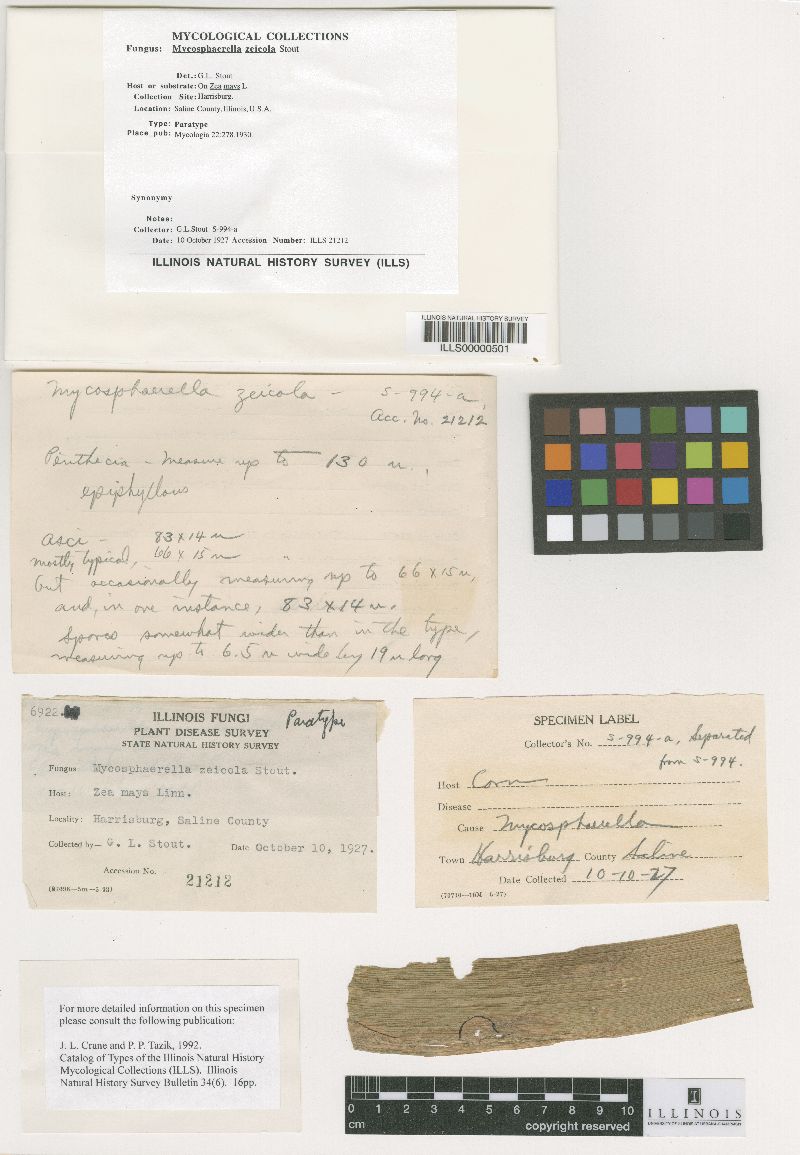 MYCOLOGICAL COLLECTIONS
Fungus: Mycosphaerella zeicola Stout
Det.: G.L. Stout
Host or substrate: On Zea mays L
Collection Site: Harrisburg.
Location: Saline County, Illinois, U.S.A.
Type: Paratype
Place pub: Mycologia 22:278.1930.
Synonymy
Notes:
Collector: G.L.Stout S-994-a
Date: 10 October 1927 Accession Number: ILLS 21212
ILLINOIS NATURAL HISTORY SURVEY (ILLS)
ILLINOIS NATURAL HISTORY SURVEY
ILLS00000501
Mycosphaerella zeicola - S-994-a,
Acc. No. 21212
Perithecia - measure up to 130 u.,
epiphyllous
asci - 83 x 14 u
mostly typical, 66 x 15 u "
but occasionally measuring up to 66 x 15 u,
and, in one instance, 83 x 14 u.
Spores somewhat wider than in the type,
measuring up to 6.5 u wide by 19 u long
6922
ILLINOIS FUNGI Paratype
PLANT DISEASE SURVEY
STATE NATURAL HISTORY SURVEY
Fungus Mycosphaerella zeicola Stout.
Host: Zea mays Linn.
Locality: Harrisburg, Saline County
Collected by— G. L. Stout. Date October 10, 1927.
Accession No.
21212
SPECIMEN LABEL
Collector's No. S-994-a, Separated
from S-994.
Host Corn
Disease
Cause Mycosphaerella
Town Harrisburg County Saline
Date Collected 10-10-27
For more detailed information on this specimen
please consult the following publication:
J. L. Crane and P. P. Tazik, 1992.
Catalog of Types of the Illinois Natural History
Mycological Collections (ILLS). Illinois
Natural History Survey Bulletin 34(6). 16pp.
0 1 2 3 4 5 6 7 8 9 10
cm copyright reserved
I
ILLINOIS